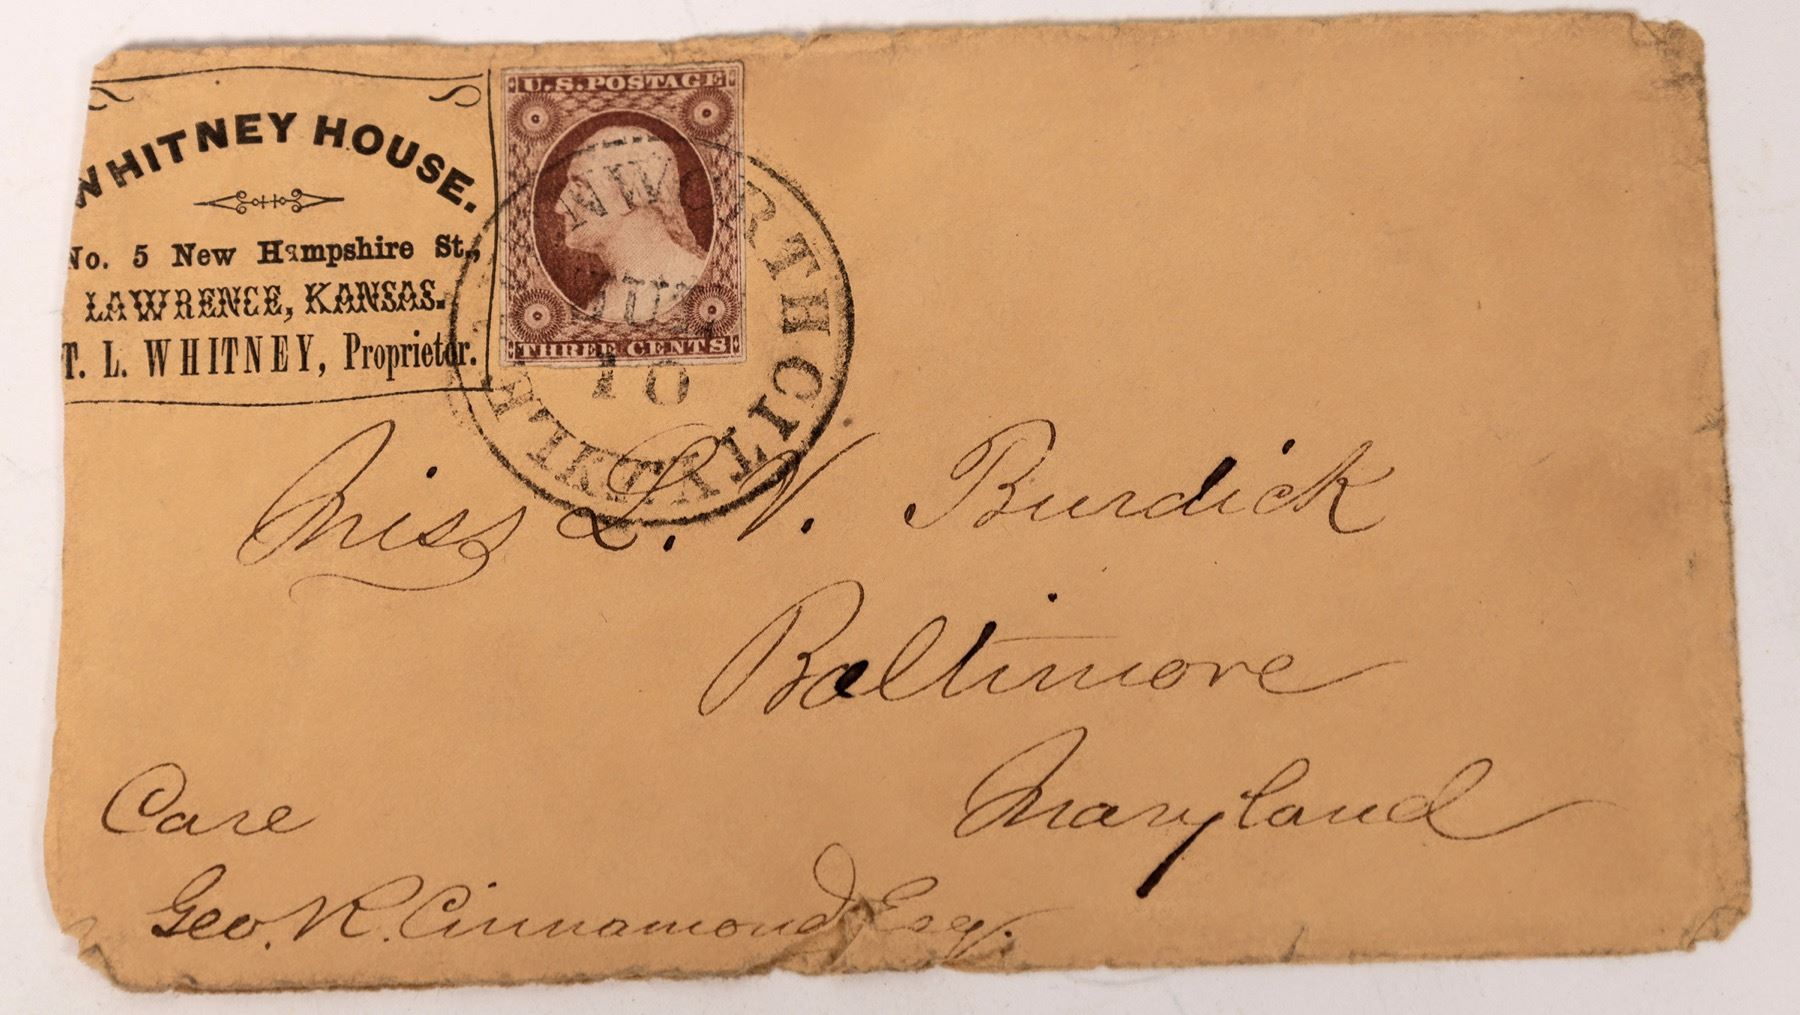 WHITNEY HOUSE.
No. 5 New Hampshire St.,
LAWRENCE, KANSAS.
T. L. WHITNEY, Proprietor.
U.S. POSTAGE
THREE CENTS
NWORTH CITY K.T.
10
Miss L. V. Burdick
Baltimore
Maryland
Care
Geo. R. Cinnamond, Esq.